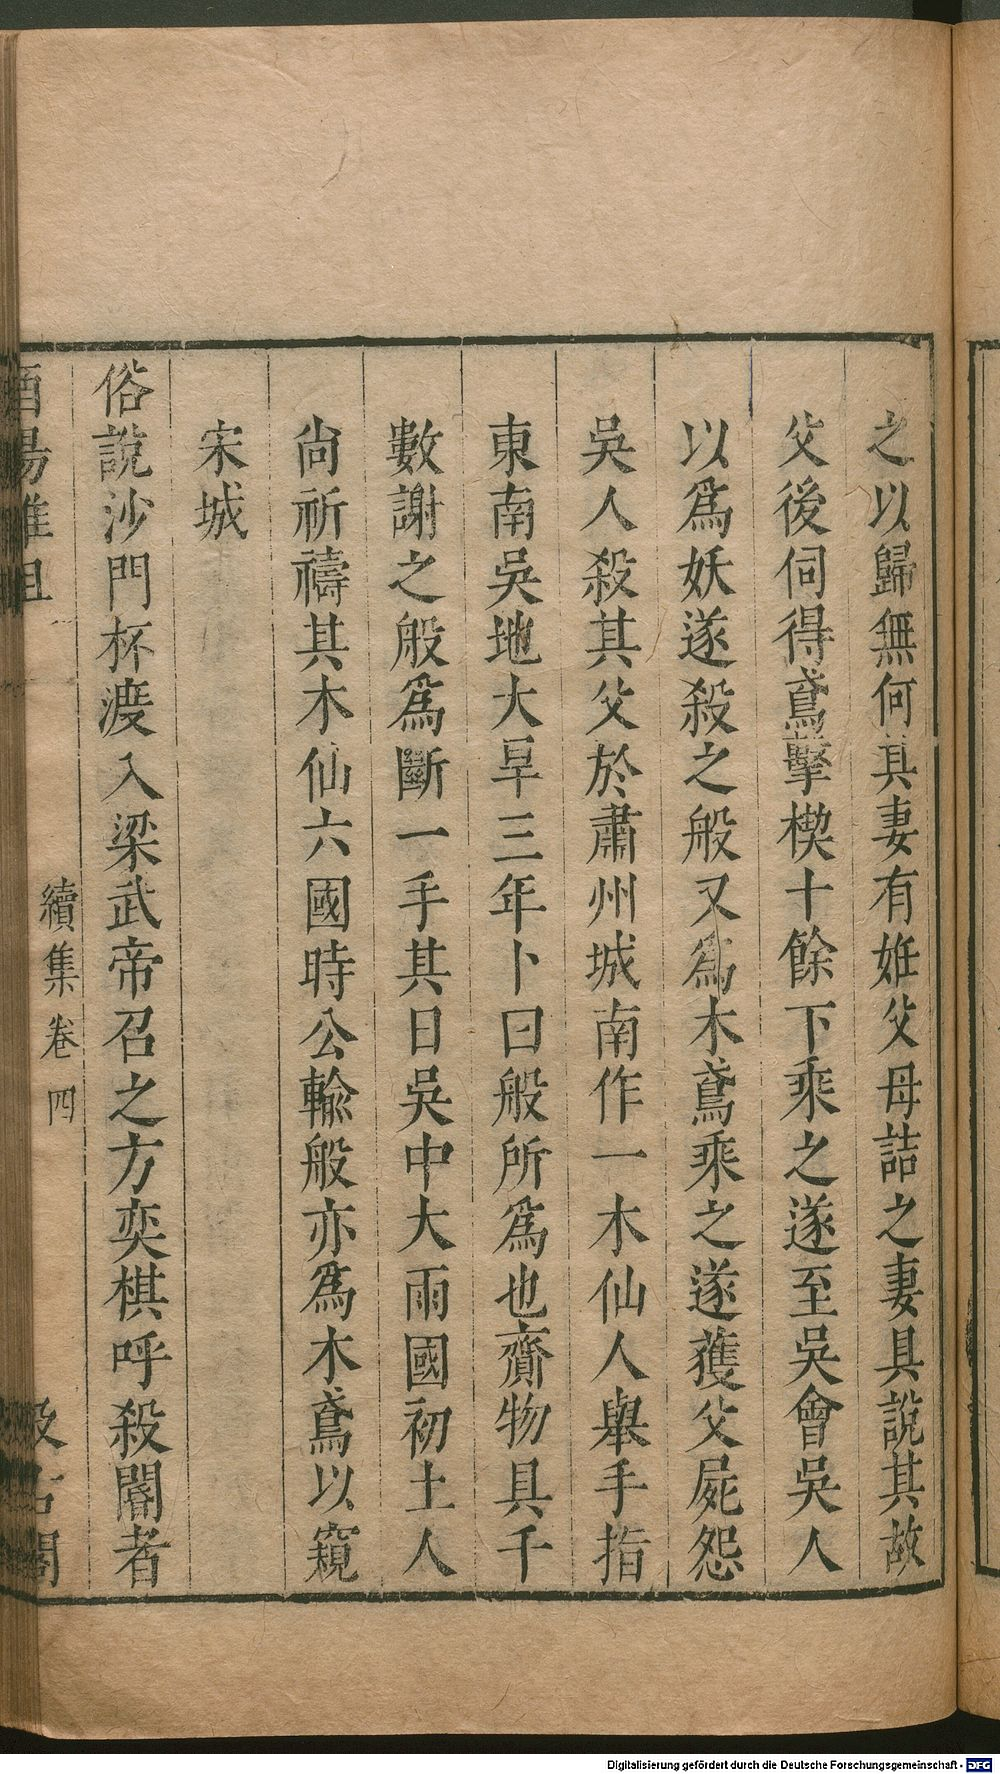 之以歸無何其妻有姙父母詰之妻具說其故
父後伺得鳶擊楔十餘下乘之遂至吳會吳人
以爲妖遂殺之般又爲木鳶乘之遂獲父屍怨
吳人殺其父於肅州城南作一木仙人舉手指
東南吳地大旱三年卜曰般所爲也齎物具千
數謝之般爲斷一手其日吳中大雨國初土人
尙祈禱其木仙六國時公輸般亦爲木鳶以窺
宋城
俗說沙門杯渡入梁武帝召之方奕棋呼殺閽者
酉陽雜俎
續集卷四
汲古閣
Digitalisierung gefördert durch die Deutsche Forschungsgemeinschaft - DFG